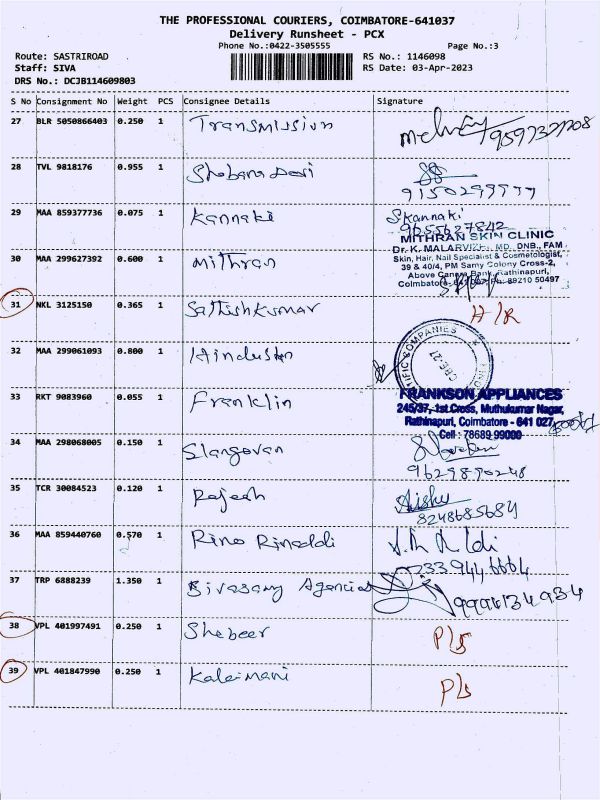 THE PROFESSIONAL COURIERS, COIMBATORE-641037
Delivery Runsheet - PCX
Phone No.:0422-3505555
Page No.:3
Route: SASTRIROAD
RS No.: 1146098
Staff: SIVA
RS Date: 03-Apr-2023
DRS No.: DCJB114609803
S No Consignment No Weight PCS Consignee Details Signature
27 BLR 5050866403 0.250 1 Transmission
28 TVL 9818176 0.955 1 Shobana Devi
29 MAA 859377736 0.075 1 Kannaki
S Kannaki
9655627842
30 MAA 299627392 0.600 1 Mithran
MITHRAN SKIN CLINIC
Dr. K. MALARVIZHI, MD, DNB., FAM
Skin, Hair, Nail Specialist & Cosmetologist,
39 & 40/4, PM Samy Colony Cross-2,
Above Canara Bank, Rathinapuri,
Coimbatore- Ph: 89210 50497
31 NKL 3125150 0.365 1 Sathishkumar H/R
32 MAA 299061093 0.800 1 Hindustan
33 RKT 9083960 0.055 1 Franklin
FRANKSON APPLIANCES
245/37, 1st Cross, Muthukumar Nagar,
Rathinapuri, Coimbatore - 641 027
Cell : 78689 99000
34 MAA 298068005 0.150 1 Slangovan
9629890248
35 TCR 30084523 0.120 1 Rajesh
Aishu
8248685684
36 MAA 859440760 0.570 1 Rino Rinaldi
37 TRP 6888239 1.350 1 Sivasamy Agencies
38 VPL 401997491 0.250 1 Shebeer P/s
39 VPL 401847990 0.250 1 Kalaimani P/s